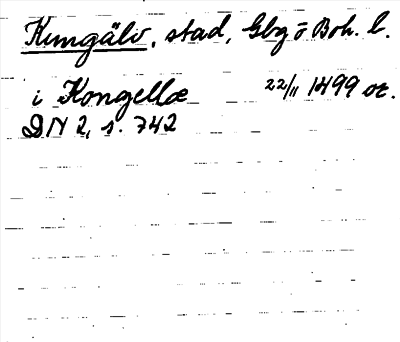 Kungälv, stad, Gbg ö Boh. l.
i Kongellæ 22/11 1499 or.
DN 2, s. 742